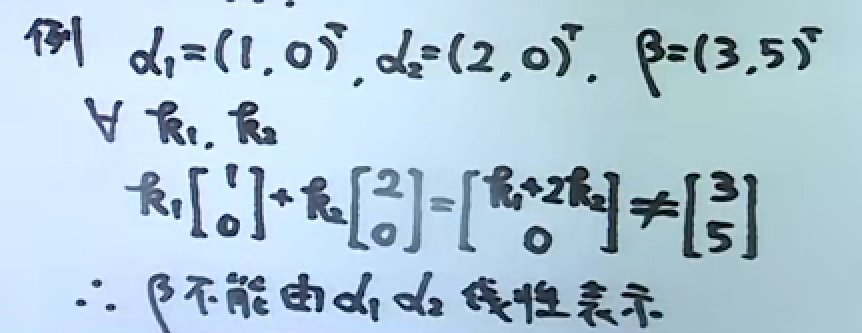 例 α₁=(1,0)ᵀ, α₂=(2,0)ᵀ. β=(3,5)ᵀ
∀ k₁, k₂
k₁[1 0]+k₂[2 0]=[k₁+2k₂ 0]≠[3 5]
∴ β不能由α₁α₂线性表示